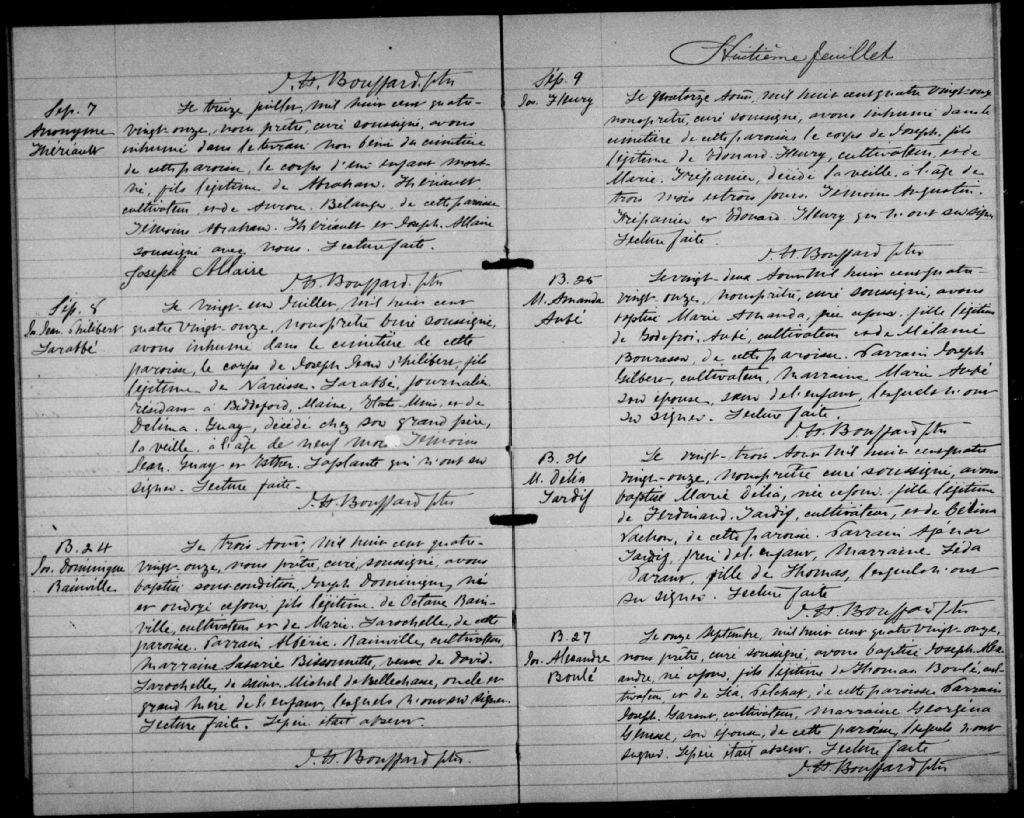 J. H. Bouffard ptre
Sép. 7
Anonyme
Thériault
Le treize juillet, mil huit cent quatre-
vingt-onze, nous prêtre, curé soussigné, avons
inhumé dans le terrain non béni du cimetière
de cette paroisse, le corps d'un enfant mort
né, fils légitime de Abraham Thériault
cultivateur, et de Aurore Belanger de cette paroisse
Témoins Abraham Thériault et Joseph Allaire
soussigné avec nous. Lecture faite.
Joseph Allaire
J. H. Bouffard ptre
Sép. 8
Jos. Jean Philibert
Larabbé
Le vingt-un Juillet, mil huit cent
quatre vingt-onze, nous prêtre curé soussigné,
avons inhumé dans le cimetière de cette
paroisse, le corps de Joseph Jean Philibert, fils
légitime de Narcisse Larabbé, journalier
résidant à Biddeford, Maine, Etats Unis, et de
Delima Guay, décédé chez son grand père,
la veille, à l'age de neuf mois Témoins
Jean Guay et Esther Laplante qui n'ont su
signer. Lecture faite.
J. H. Bouffard ptre
B. 24
Jos. Dominique
Bainville
Le trois Août, mil huit cent quatre-
vingt-onze, nous prêtre, curé, soussigné, avons
baptisé sous condition, Joseph Dominique, né
et ondoyé ce jour, fils légitime de Octave Bain-
ville, cultivateur et de Marie Larochelle, de cette
paroisse. Parrain Albéric Bainville, cultivateur,
marraine Lasarie Bissonnette, veuve de David
Larochelle, de Saint Michel de Bellechasse, oncle et
grand mère de l'enfant, lesquels n'ont su signer.
Lecture faite. Le père était absent.
J. H. Bouffard ptre.
Huitième feuillet
Sép. 9
Jos. Fleury
Le quatorze Août, mil huit cent quatre vingt-onze
nous prêtre, curé soussigné, avons inhumé dans le
cimetière de cette paroisse le corps de Joseph, fils
légitime de Edouard Fleury, cultivateur, et de
Marie Trépanier, décédé la veille, à l'age de
trois mois et trois jours. Témoins Augustin
Trépanier et Edouard Fleury qui n'ont su signer
Lecture faite.
J. H. Bouffard ptre
B. 25
M. Amanda
Aubé
Le vingt-deux Août mil huit cent quatre-
vingt-onze, nous prêtre, curé soussigné, avons
baptisé Marie Amanda, née ce jour, fille légitime
de Godefroi Aubé, cultivateur et de Mélanie
Bourassa, de cette paroisse. Parrain Joseph
Gilbert, cultivateur, marraine Marie Aubé
son épouse, sœur de l'enfant, lesquels n'ont
su signer. Lecture faite.
J. H. Bouffard ptre
B. 26
M. Délia
Tardif
Le vingt-trois Août mil huit cent quatre
vingt-onze, nous prêtre curé soussigné, avons
baptisé Marie Délia, née ce jour, fille légitime
de Ferdinand Tardif, cultivateur, et de Célina
Vachon, de cette paroisse. Parrain Agénor
Tardif, frère de l'enfant, marraine Léda
Parant, fille de Thomas, lesquels n'ont
su signer. Lecture faite
J. H. Bouffard ptre
B. 27
Jos. Alexandre
Boulé
Le onze Septembre, mil huit cent quatre vingt-onze,
nous prêtre, curé soussigné, avons baptisé Joseph Alex-
andre, né ce jour, fils légitime de Thomas Boulé, cul-
tivateur et de Léa Pelchat, de cette paroisse Parrain
Joseph Garant, cultivateur, marraine Georgina
son épouse, de cette paroisse, lesquels n'ont
signer. Le père était absent. Lecture faite
J. H. Bouffard ptre